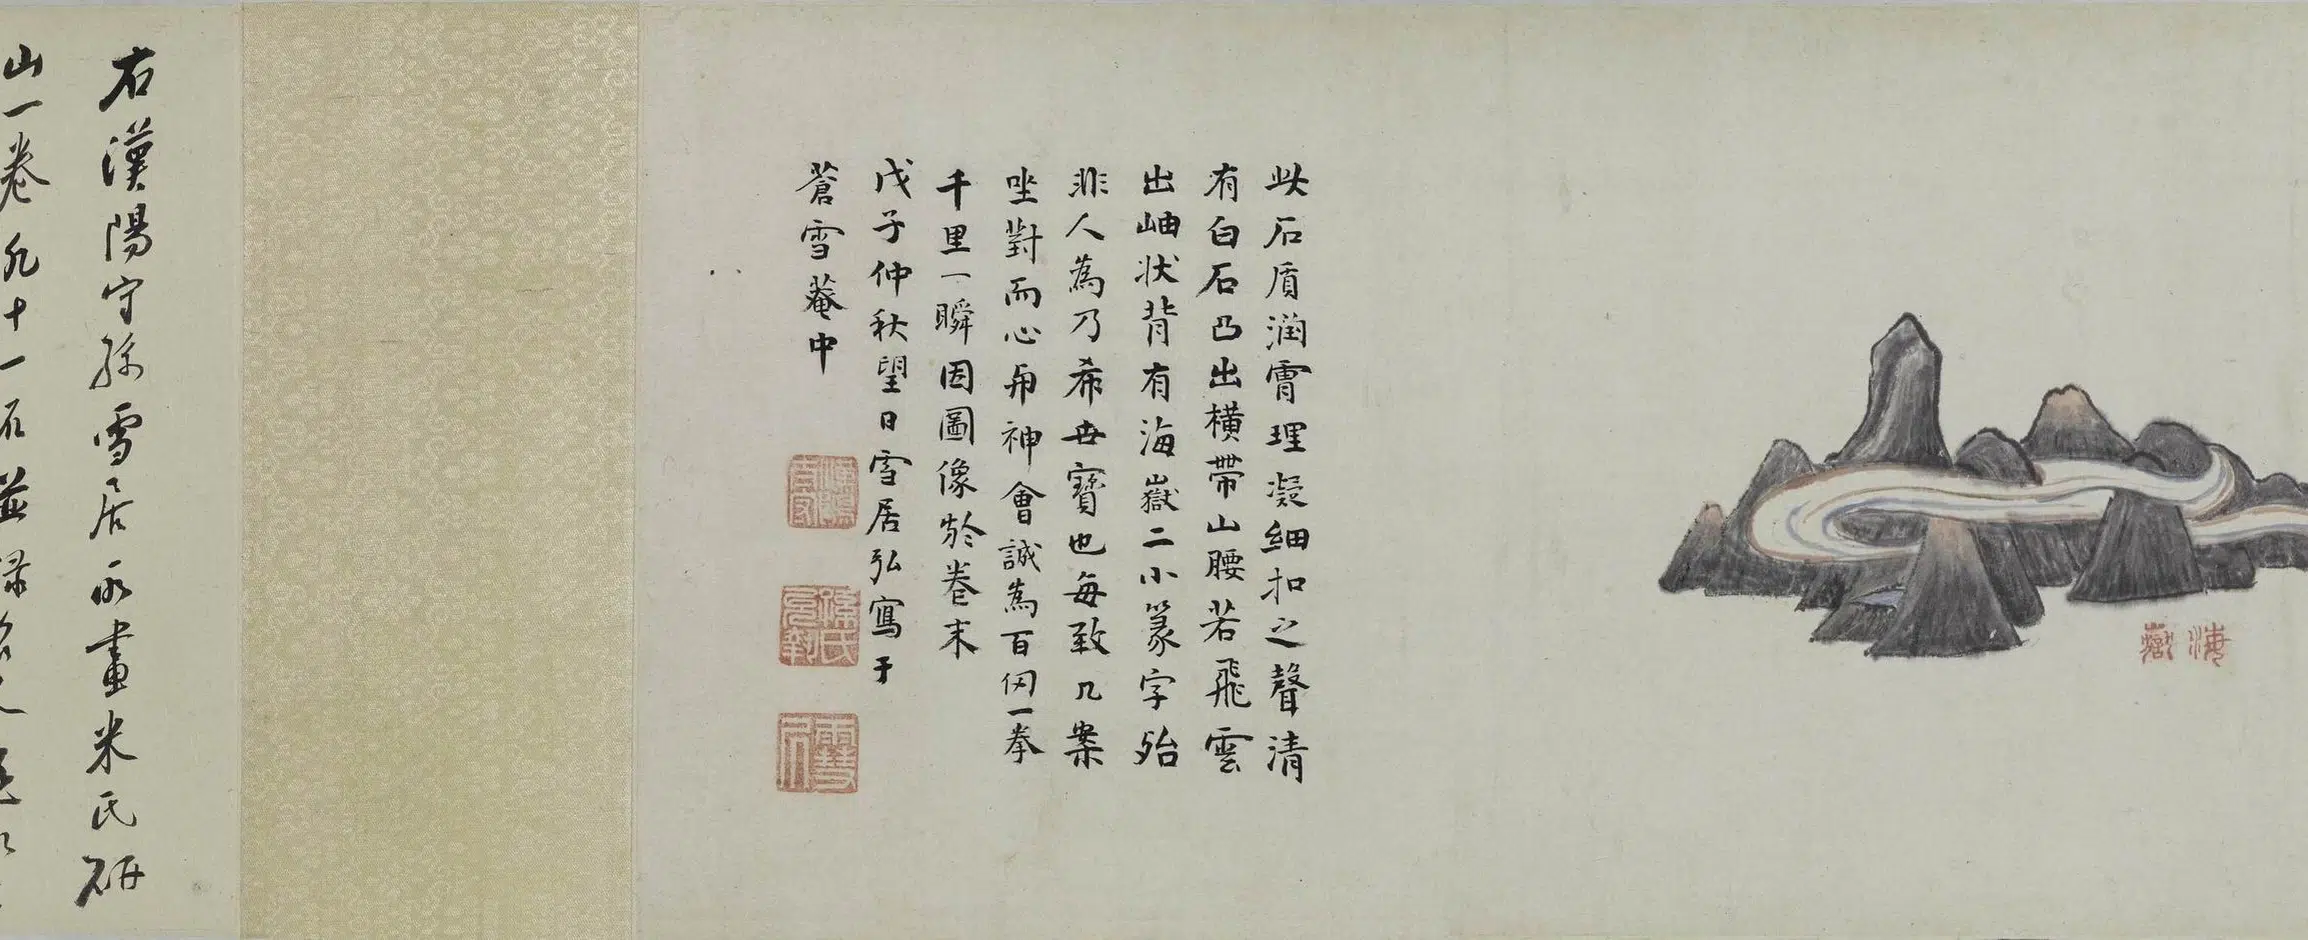 海嶽
此石質潤膚理凝細扣之聲清
有白石凸出橫帶山腰若飛雲
出岫狀背有海嶽二小篆字殆
非人為乃希世寶也每致几案
坐對而心與神會誠為百仞一拳
千里一瞬因圖像於卷末
戊子仲秋望日雪居弘寫于
蒼雪菴中
孫氏允執
右漢陽守孫雪居所畫米氏研
山一卷凡十一石並錄